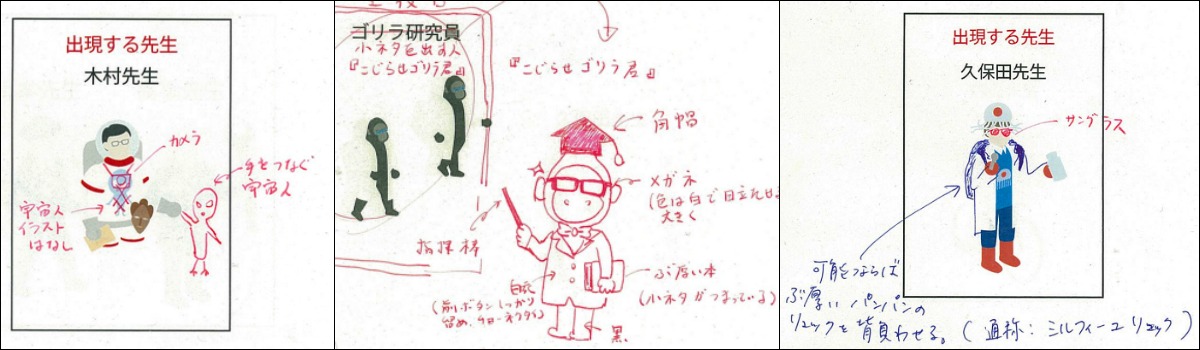 出現する先生
木村先生
カメラ
手をつなぐ
宇宙人
宇宙人
イラスト
はなし
ゴリラ研究員
小ネタを出す人
『こじらせゴリラ君』
『こじらせゴリラ君』
角帽
メガネ
(色は白で目立たせる
大きく
指揮棒
白衣
(前ボタンしっかり
留め、
ぶ厚い本
(小ネタがつまっている)
黒
出現する先生
久保田先生
サングラス
可能ならば
ぶ厚いパンパンの
リュックを背負わせる。(通称:ミルフィーユリュック)